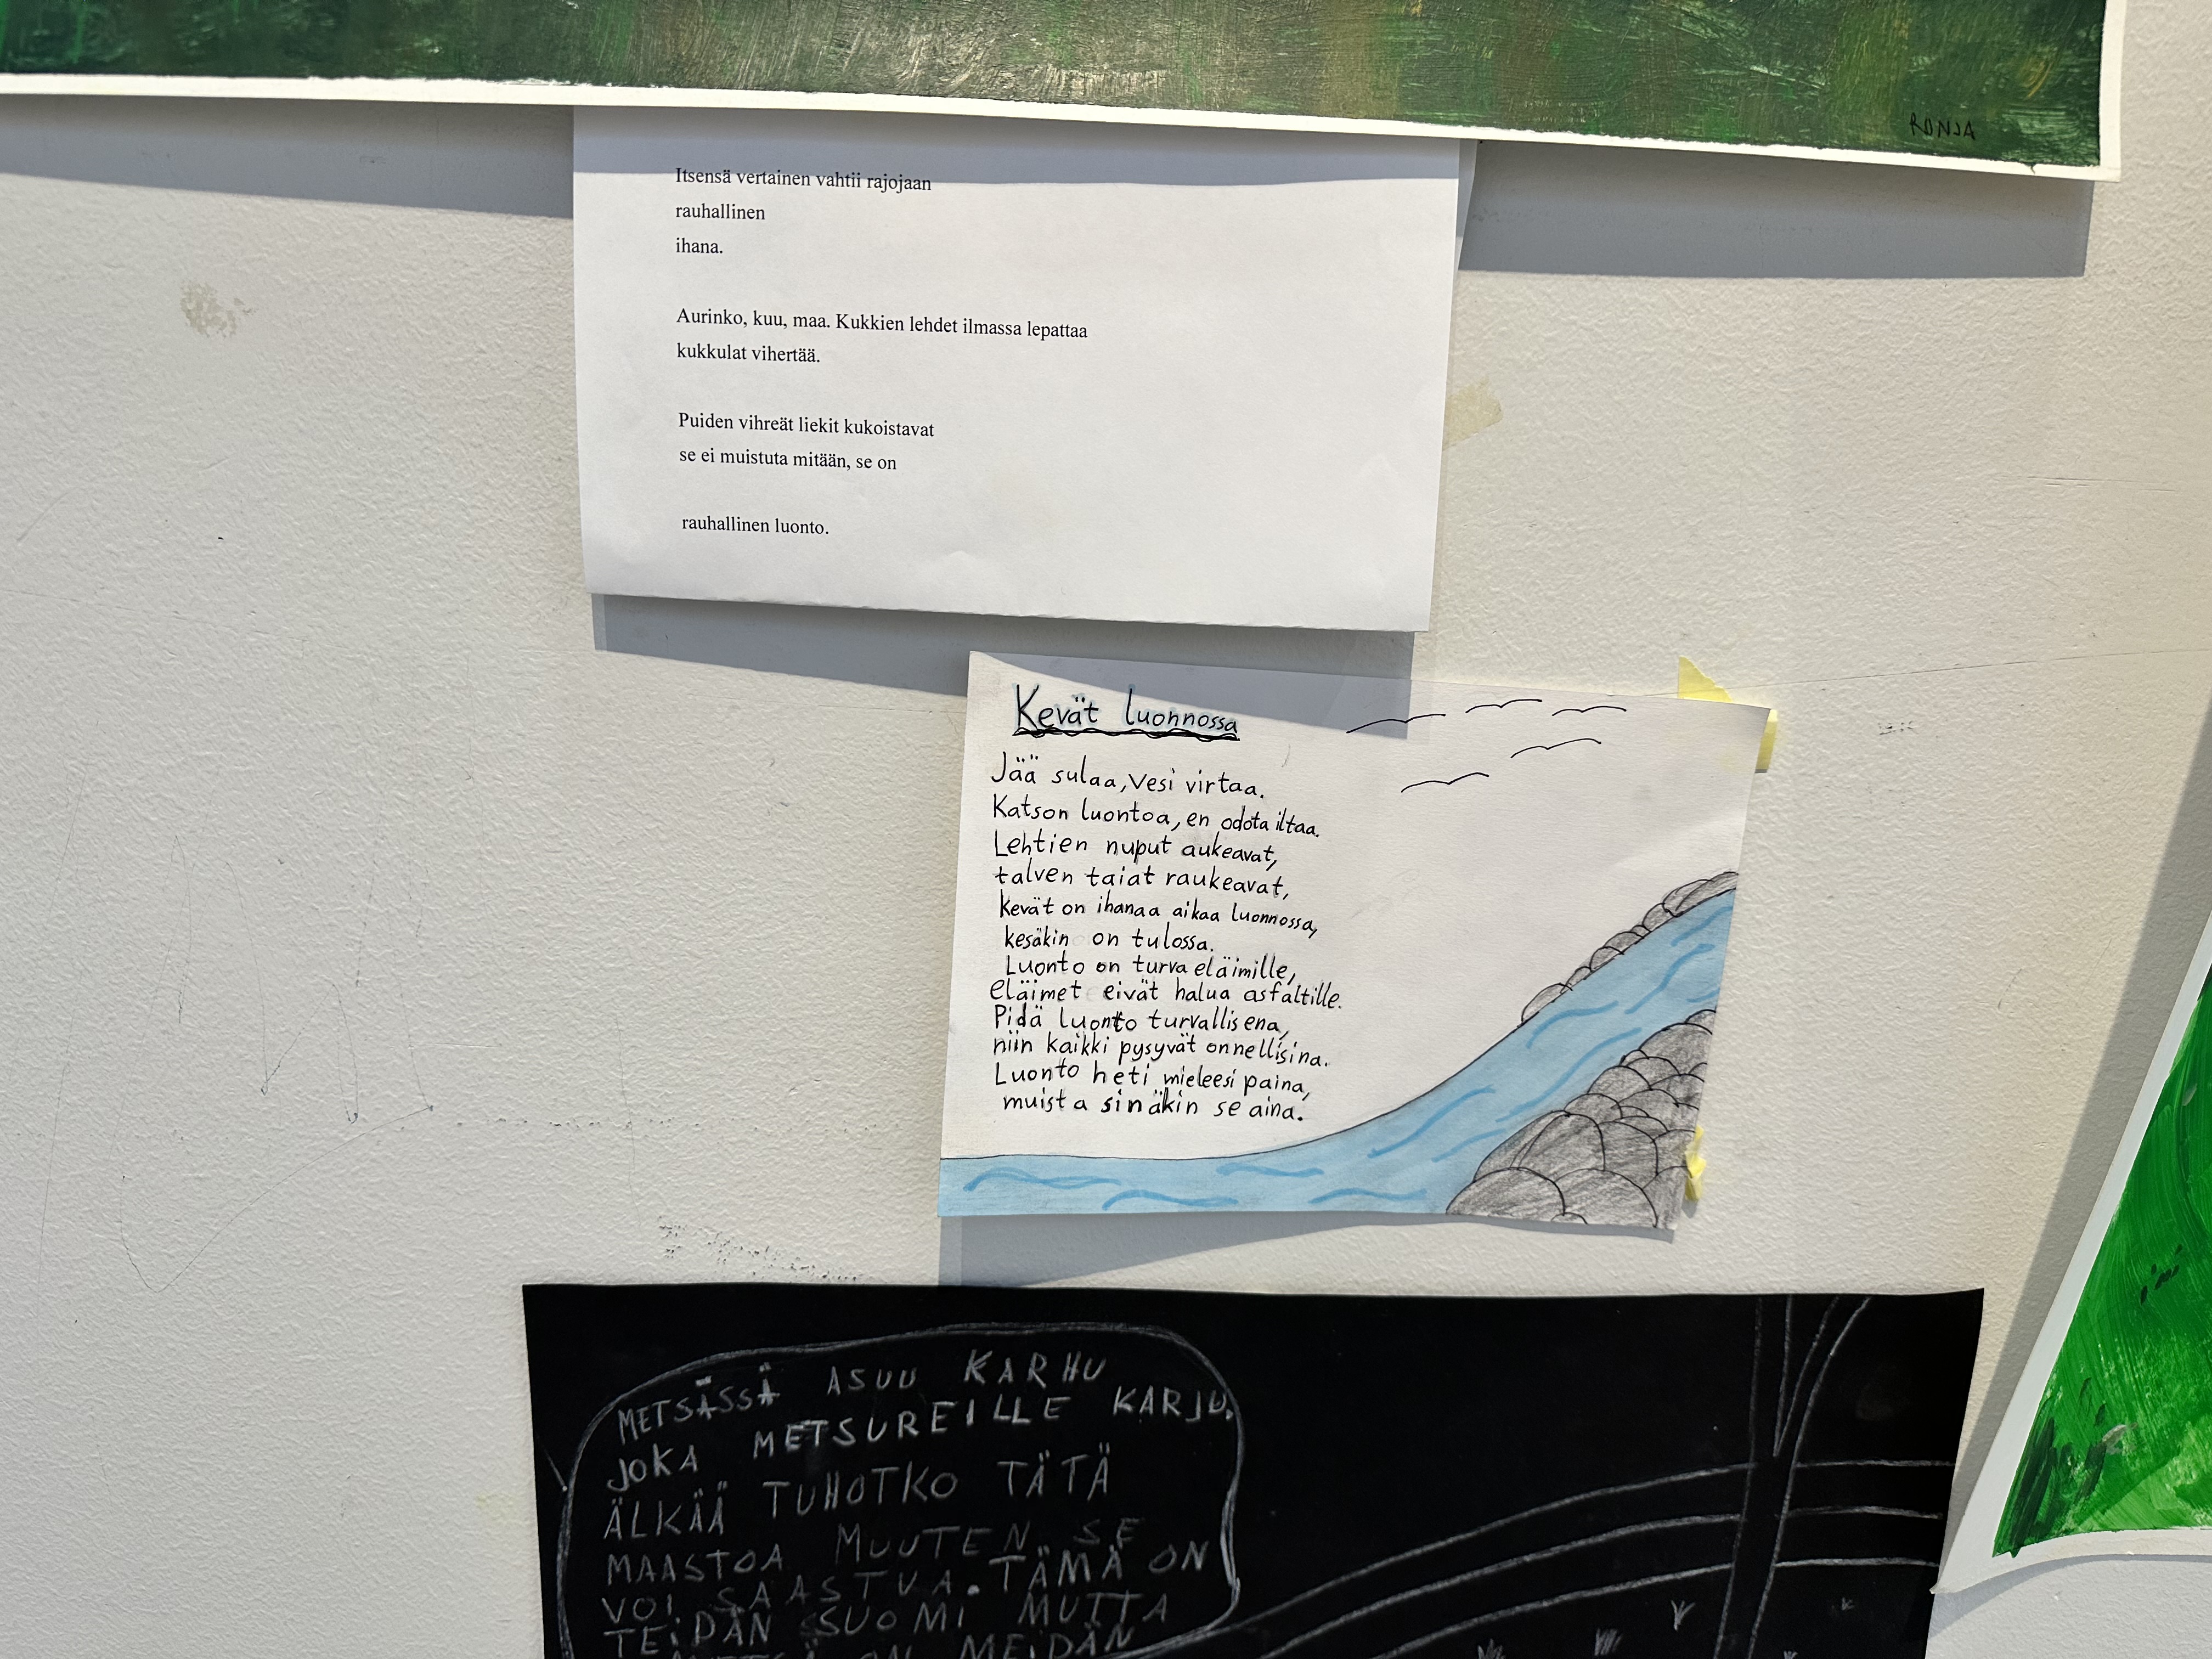 RONJA
Itsensä vertainen vahtii rajojaan
rauhallinen
ihana.
Aurinko, kuu, maa. Kukkien lehdet ilmassa lepattaa
kukkulat vihertää.
Puiden vihreät liekit kukoistavat
se ei muistuta mitään, se on
rauhallinen luonto.
Kevät luonnossa
Jää sulaa, Vesi virtaa.
Katson luontoa, en odota iltaa.
Lehtien nuput aukeavat,
talven taiat raukeavat,
kevät on ihanaa aikaa luonnossa,
kesäkin on tulossa.
Luonto on turva eläimille,
eläimet eivät halua asfaltille.
Pidä luonto turvallisena,
niin kaikki pysyvät onnellisina.
Luonto heti mieleesi paina,
muista sinäkin se aina.
METSÄSSÄ ASUU KARHU
JOKA METSUREILLE KARJU.
ÄLKÄÄ TUHOTKO TÄTÄ
MAASTOA MUUTEN SE
VOI SAASTUA. TÄMÄ ON
TEIDÄN SUOMI MUTTA
ON MEIDÄN